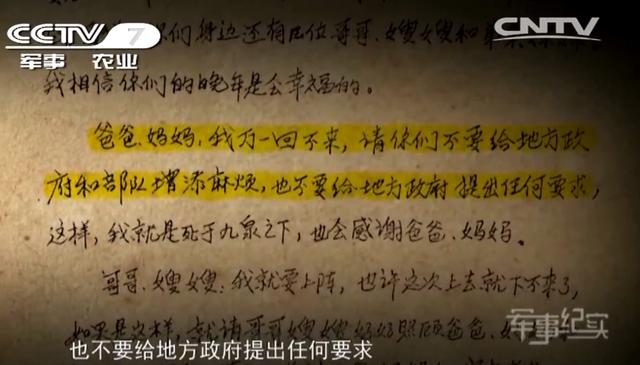 CCTV 7
军事 农业
CNTV
你们身边还有几位哥哥、嫂嫂和
我相信你们的晚年是会幸福的。
爸爸、妈妈,我万一回不来,请你们不要给地方政
府和部队增添麻烦,也不要给地方政府提出任何要求,
这样,我就是死于九泉之下,也会感谢爸爸、妈妈。
哥哥、嫂嫂:我就要上阵,也许这次上去就下不来了,
如果是这样,就请哥哥嫂嫂好好照顾爸爸、
军事纪实
也不要给地方政府提出任何要求